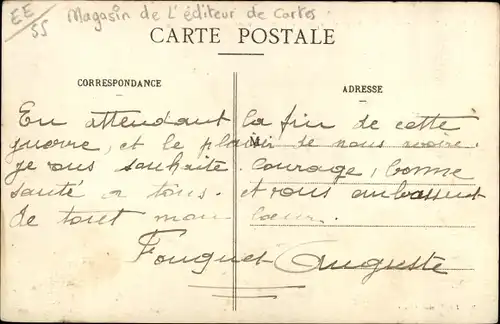 EE
55
Magasin de L'éditeur de Cartes
CARTE POSTALE
CORRESPONDANCE
ADRESSE
En attendant la fin de cette
guerre, et le plaisir de nous revoire.
je vous souhaite. Courage, bonne
santé a tous. et vous embassent
de tout mon cœur.
Fouquet Auguste